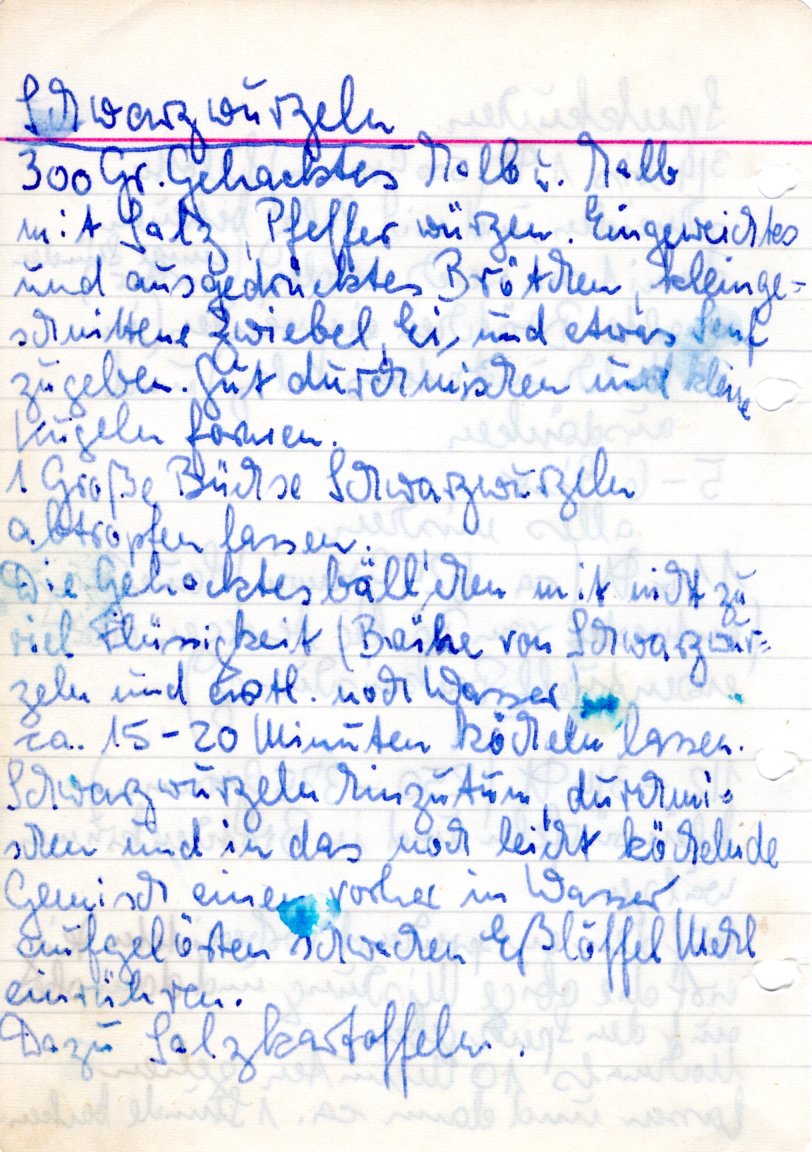 Schwarzwurzeln
300 Gr. Gehacktes Halb u. Halb
mit Salz, Pfeffer würzen. Eingeweichtes
und ausgedrücktes Brötchen, kleinge-
schnittene Zwiebel, Ei, und etwas Senf
zugeben. Gut durchmischen und kleine
Kugeln formen.
1 Große Büchse Schwarzwurzeln
abtropfen lassen.
Die Gehacktesbällchen mit nicht zu
viel Flüssigkeit (Brühe von Schwarzwur-
zeln und evtl. noch Wasser)
ca. 15-20 Minuten köcheln lassen.
Schwarzwurzeln hinzutun, durchmi-
schen und in das noch leicht köchelnde
Gemisch einen vorher in Wasser
aufgelösten schwachen Eßlöffel Mehl
einrühren.
Dazu Salzkartoffeln.